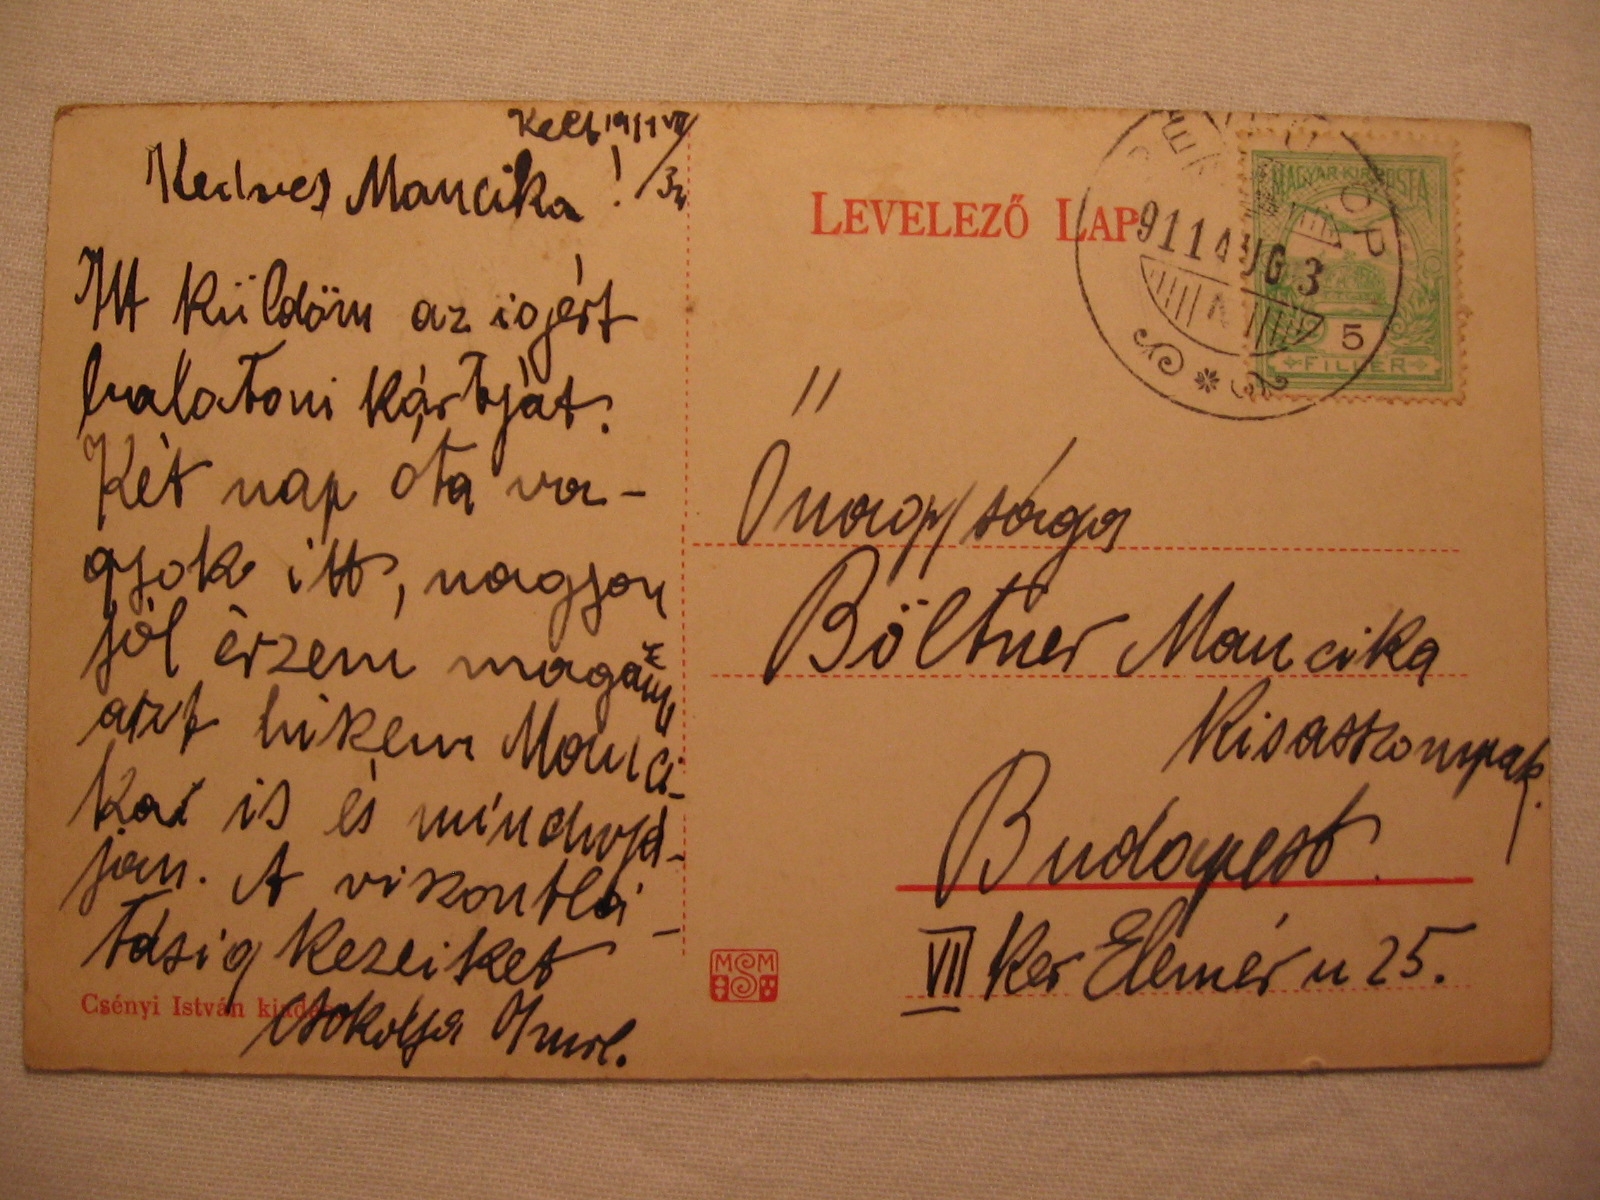 Kelt 1911 VII/
Kedves Mancika!
Itt küldöm az igért
balatoni kártyát.
Két nap óta va-
gyok itt, nagyon
jól érzem magam
azt hikem Manci-
kai is és
jan. A viszontlá-
tásig kezeiket
csokolja
Csényi István kiadása
LEVELEZŐ LAP
911 AUG 3
A
MAGYAR KIR. POSTA
5
FILLER
Őnagysága
Böltner Mancika
Kisasszonynak.
Budapest.
VII Ker Elemér u 25.
MSM